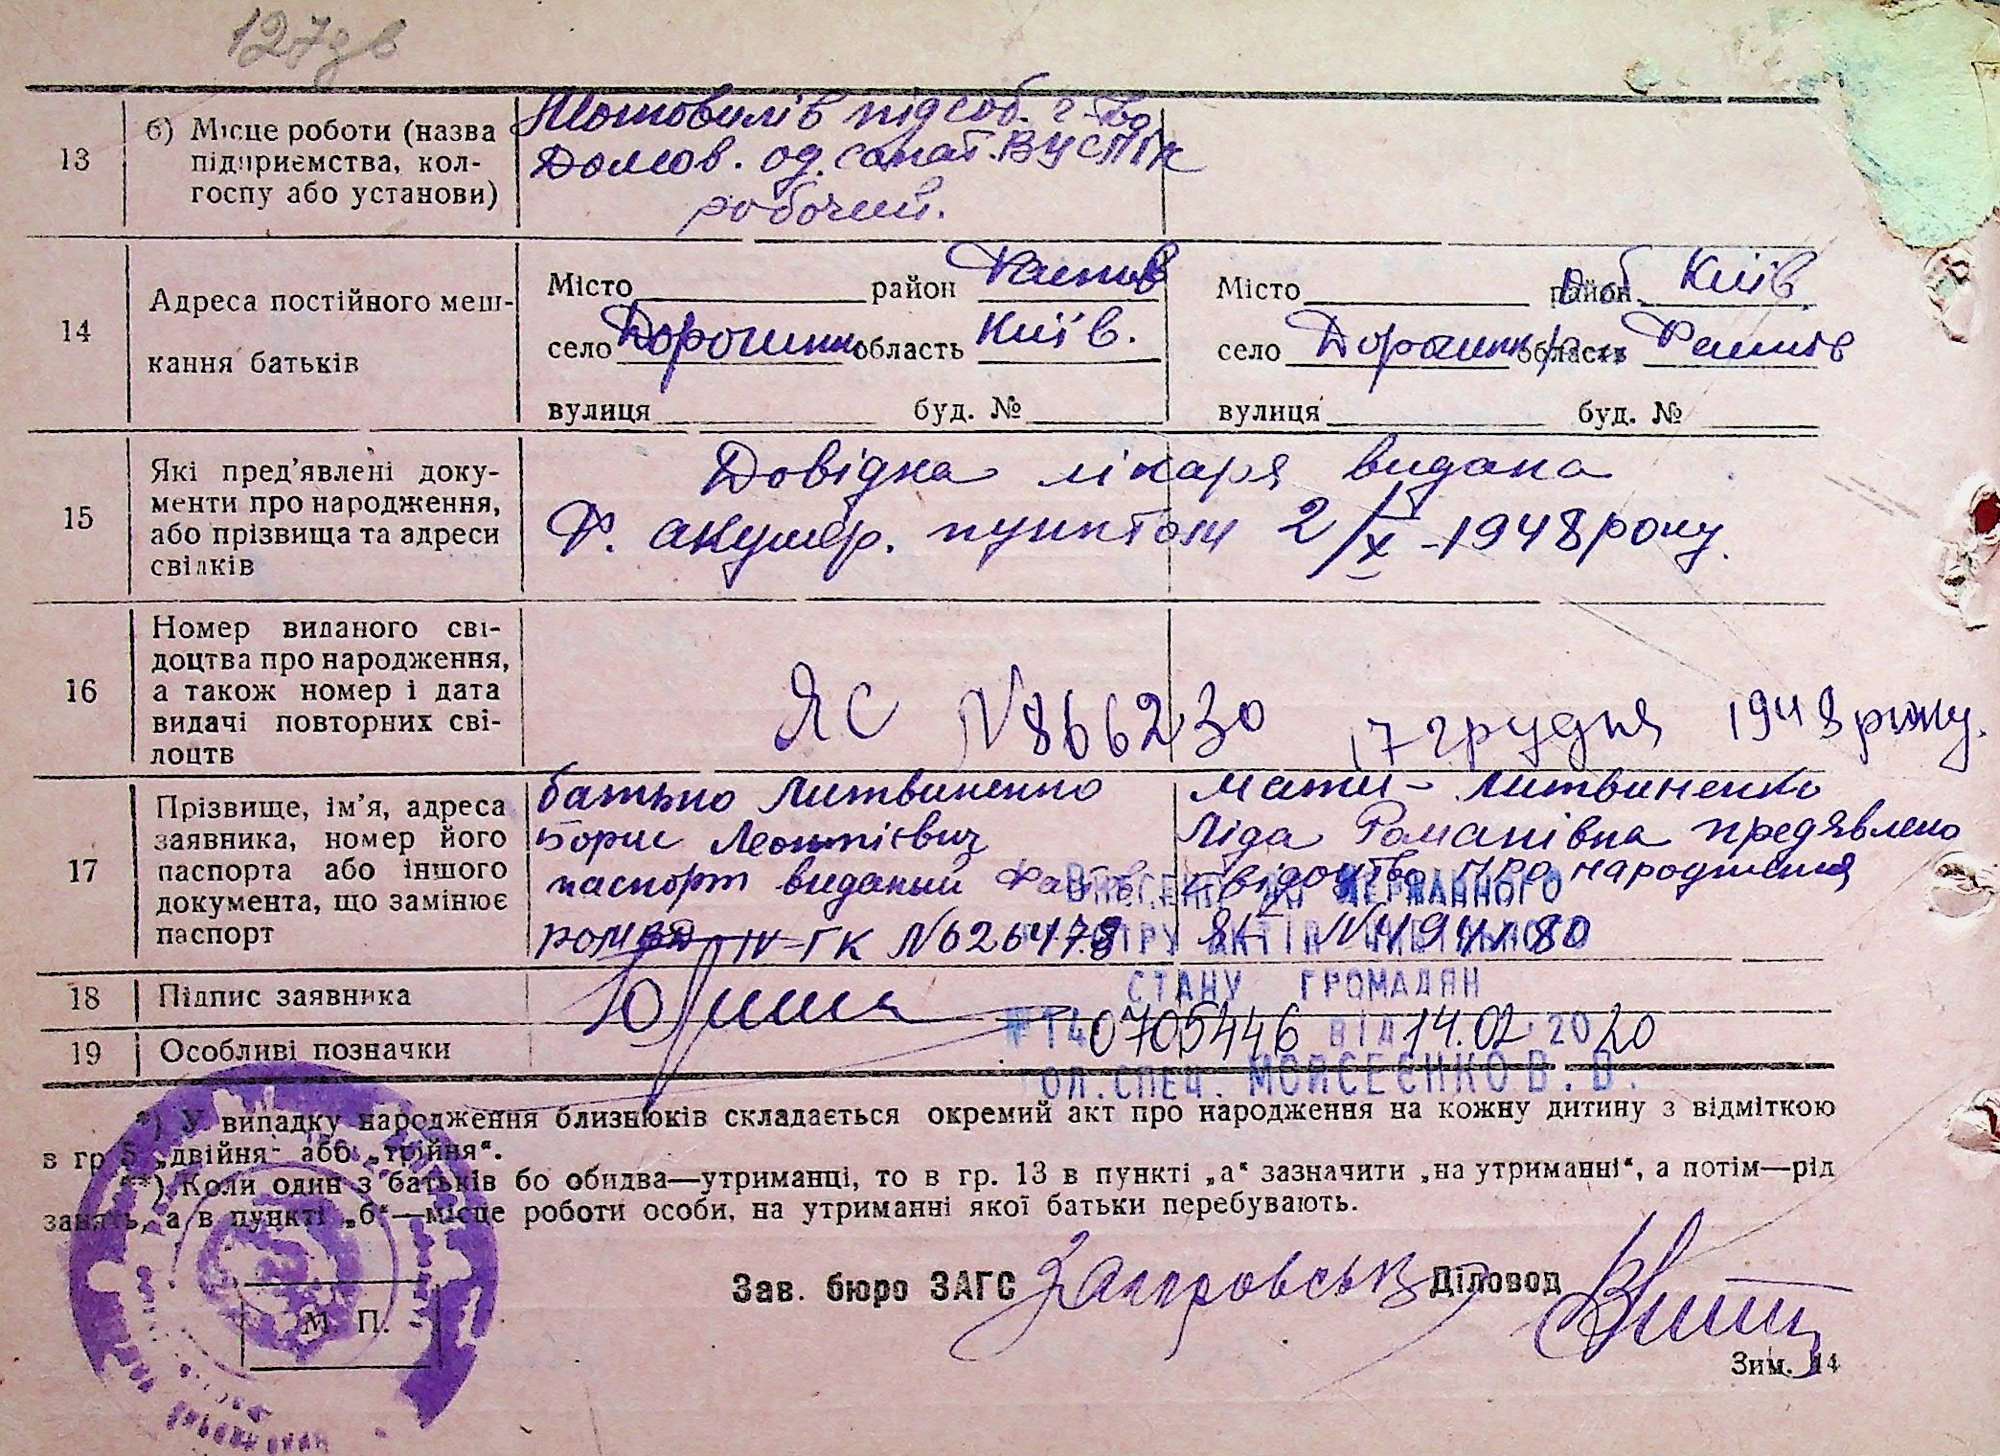 127зв
13
б) Місце роботи (назва
підприємства, кол-
госпу або установи)
Мотовилів підсоб. г-во
од. санат. ВУСПІК
робочий.
14
Адреса постійного меш-
кання батьків
Місто район Фастів
село Дорогинка область Київ.
вулиця буд. №
Місто район об Київ
село Дорогинка область р Фастів
вулиця буд. №
15
Які пред'явлені доку-
менти про народження,
або прізвища та адреси
свідків
Довідка лікаря видана
Ф. акушер. пунктом 2/X-1948 року.
16
Номер виданого сві-
доцтва про народження,
а також номер і дата
видачі повторних сві-
доцтв
ЯС № 866230 17 грудня 1948 року.
17
Прізвище, ім'я, адреса
заявника, номер його
паспорта або іншого
документа, що замінює
паспорт
батько Литвиненко
Борис Леонтієвич
паспорт виданий Фастів
IV-ГК № 626478
мати - Литвиненко
Ліда Романівна предявлено
свідоцтво про народження
ВНЕСЕНО ДО ДЕРЖАВНОГО
РЕЄСТРУ АКТІВ ЦИВІЛЬНОГО
СТАНУ ГРОМАДЯН
№ 140705446 ВІД 14.02 2020
ГОЛ.СПЕЦ. МОЙСЕЄНКО В.В.
18
Підпис заявника
19
Особливі позначки
*) У випадку народження близнюків складається окремий акт про народження на кожну дитину з відміткою
в гр 5 „двійня" або „трійня".
**) Коли один з батьків бо обидва—утриманці, то в гр. 13 в пункті „а" зазначити „на утриманні", а потім—рід
занять, а в пункті „б"—місце роботи особи, на утриманні якої батьки перебувають.
Зав. бюро ЗАГС Діловод
М. П.
Зим. 14